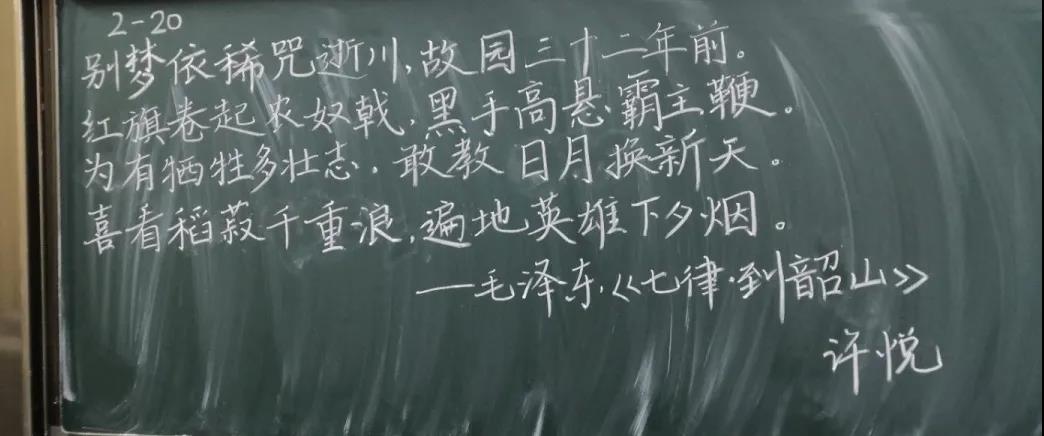 2-20
别梦依稀咒逝川,故园三十二年前。
红旗卷起农奴戟,黑手高悬霸主鞭。
为有牺牲多壮志,敢教日月换新天。
喜看稻菽千重浪,遍地英雄下夕烟。
—毛泽东《七律·到韶山》
许悦